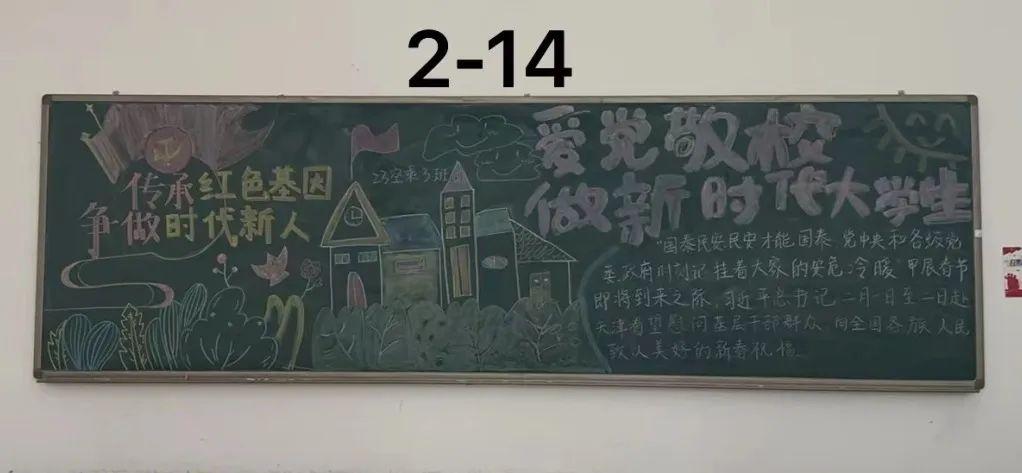 2-14
传承红色基因
争做时代新人
爱党敬校
做新时代大学生
"国泰民安民安才能国泰 党中央和各级党
委政府时刻记挂着大家的安危冷暖 甲辰春节
即将到来之际 习近平总书记二月一日至二日赴
天津看望慰问基层干部群众 向全国各族人民
致以美好的新春祝福